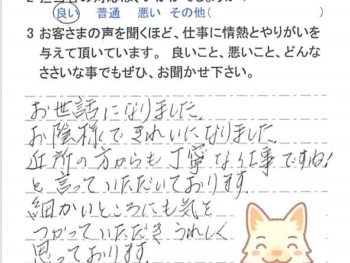 良い 普通 悪い その他(　　　　)
3 お客さまの声を聞くほど、仕事に情熱とやりがいを
与えて頂いています。 良いこと、悪いこと、どんな
ささいな事でもぜひ、お聞かせ下さい。
お世話になりました。
お陰様で きれいになりました。
近所の方からも丁寧な仕事ですね!
と言っていただいております。
細かいところにも気を
つかっていただき うれしく
思っております。